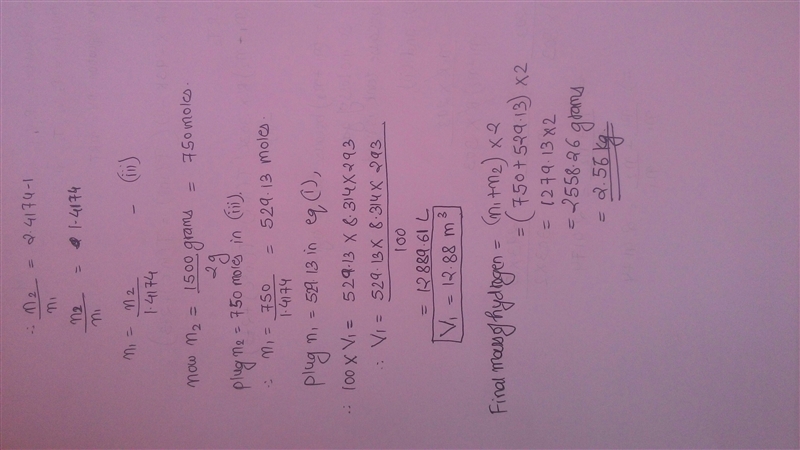 ∴ n2/n1 = 2.4174-1
n2/n1 = 1.4174
n1 = n2/1.4174 - (iii)
now n2 = 1500 grams/2g = 750 moles.
plug n2 = 750 moles in (iii).
∴ n1 = 750/1.4174 = 529.13 moles.
plug n1 = 529.13 in eq (1),
∴ 100 x V1 = 529.13 x 8.314 x 293
∴ V1 = 529.13 x 8.314 x 293/100
= 12889.61 L
V1 = 12.88 m³
Final mass of hydrogen = (n1+n2) x 2
= (750 + 529.13) x 2
= 1279.13 x 2
= 2558.26 grams
= 2.56 kg